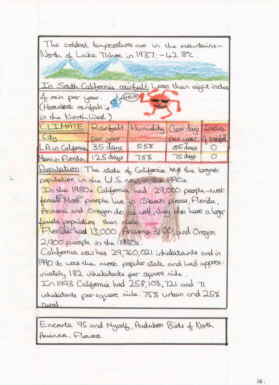 The coldest temperature was in the mountains-
North of Lake Tahoe in 1937: -42.8°C
In South California rainfall less than eight inches
of rain per year
(Heaviest rainfall is
in the North West)
CLIMATE Rainfall Humidity Clear days Inches
City per year of
L.A in California 35 days 55% 0
Miami in Florida 125 days 75% 75 days 0
Population: The state of California has the largest
population in the U.S.
In the 1980s California had 29,000 people-most
female. Most people live in Florida,
Arizona and Oregon do as well, they also have a large
female population
Florida had 13,000 Arizona 3,100, and Oregon
2,900 people in the 1980s.
California also has 29,760,021 inhabitants and in
1990 it was the most popular state and had approx-
imately 182 inhabitants per square mile.
In 1993 California had 258,108, 121 and 71
inhabitants per square mile. 75% urban and 25%
rural.
Encarta '95 and Myself, Audubon Birds of North
America, Florida